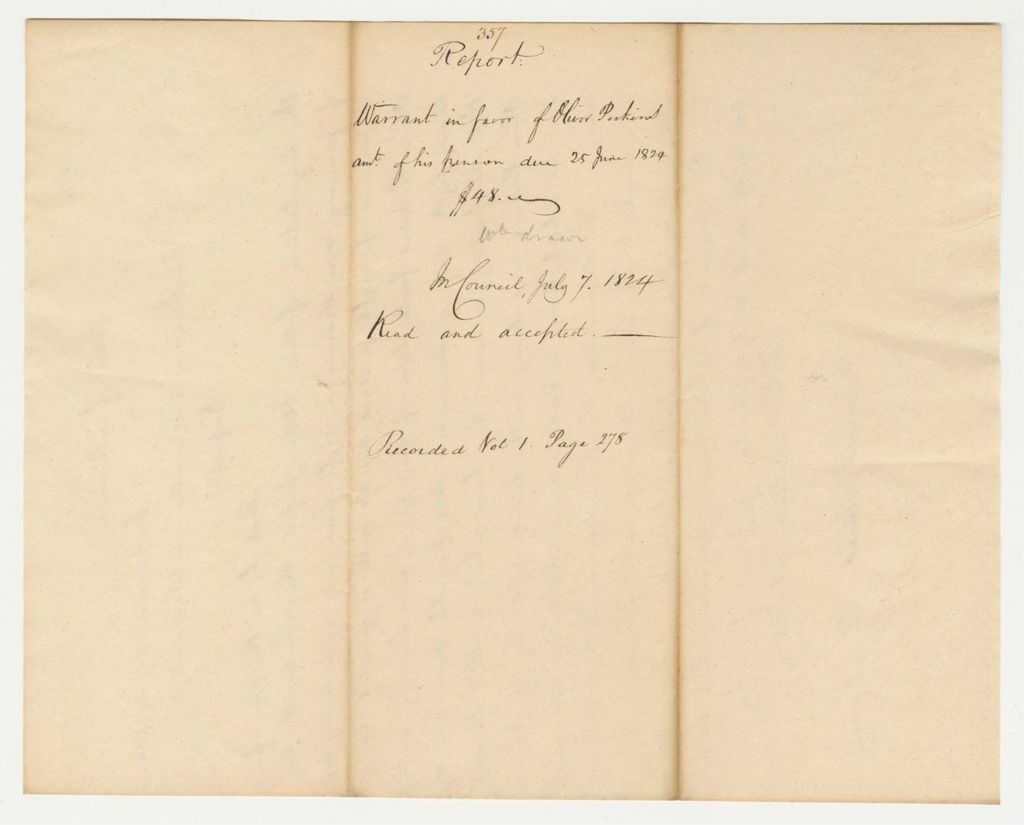 357
Report.
Warrant in favor of Oliver Perkins
amt. of his pension due 25 June 1824
$48.
drawn
In Council, July 7. 1824
Read and accepted.
Recorded Vol 1. Page 278